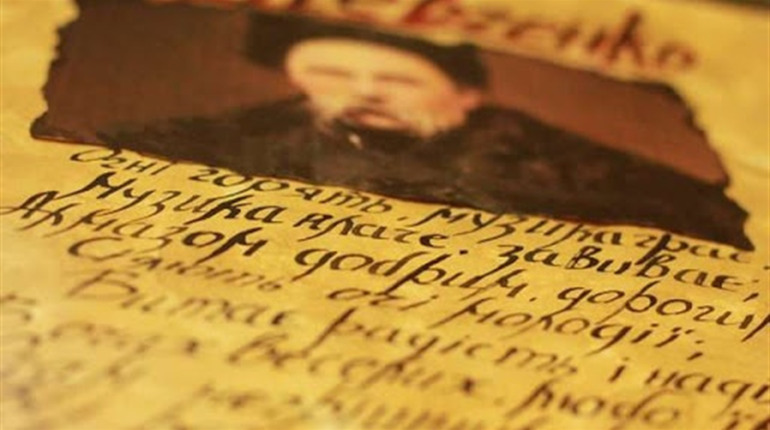 евченко
Огні горять, музика грає.
Музика плаче, завиває;
Алмазом добрим, дорогим
Сіяють очі молодії;
Витає радість і наді
очах веселих, любо ї